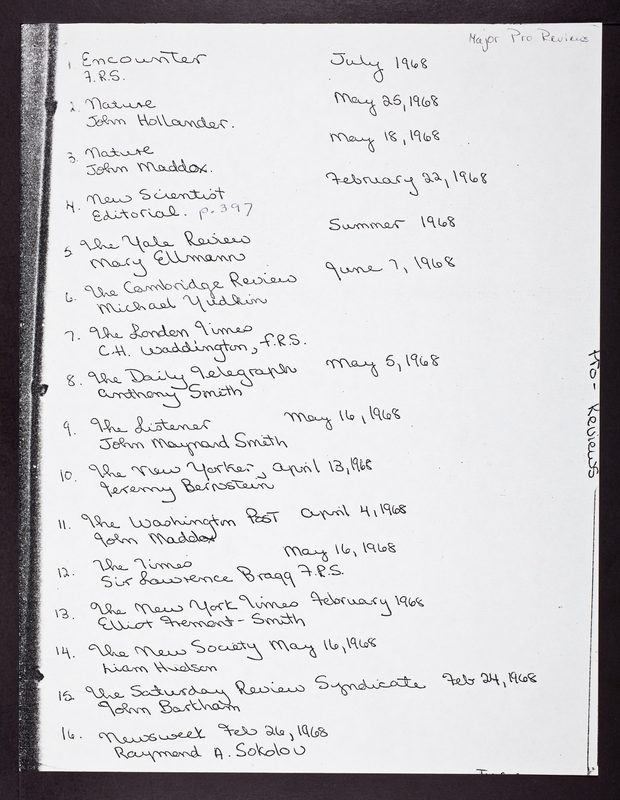 Major Pro Reviews
1. Encounter July 1968
F.R.S.
2. Nature May 25, 1968
John Hollander.
3. Nature May 18, 1968
John Maddox.
4. New Scientist February 22, 1968
Editorial. p. 397
5. The Yale Review Summer 1968
Mary Ellmann
6. The Cambridge Review June 7, 1968
Michael Yudkin
7. The London Times
C.H. Waddington, F.R.S.
8. The Daily Telegraph May 5, 1968
Anthony Smith
9. The Listener May 16, 1968
John Maynard Smith
10. The New Yorker, April 13, 1968
Jeremy Bernstein
11. The Washington Post April 4, 1968
John Maddox
12. The Times May 16, 1968
Sir Lawrence Bragg F.R.S.
13. The New York Times February 1968
Elliot Fremont-Smith
14. The New Society May 16, 1968
Liam Hudson
15. The Saturday Review Syndicate Feb 24, 1968
John Barkham
16. Newsweek Feb 26, 1968
Raymond A. Sokolov
Reviews